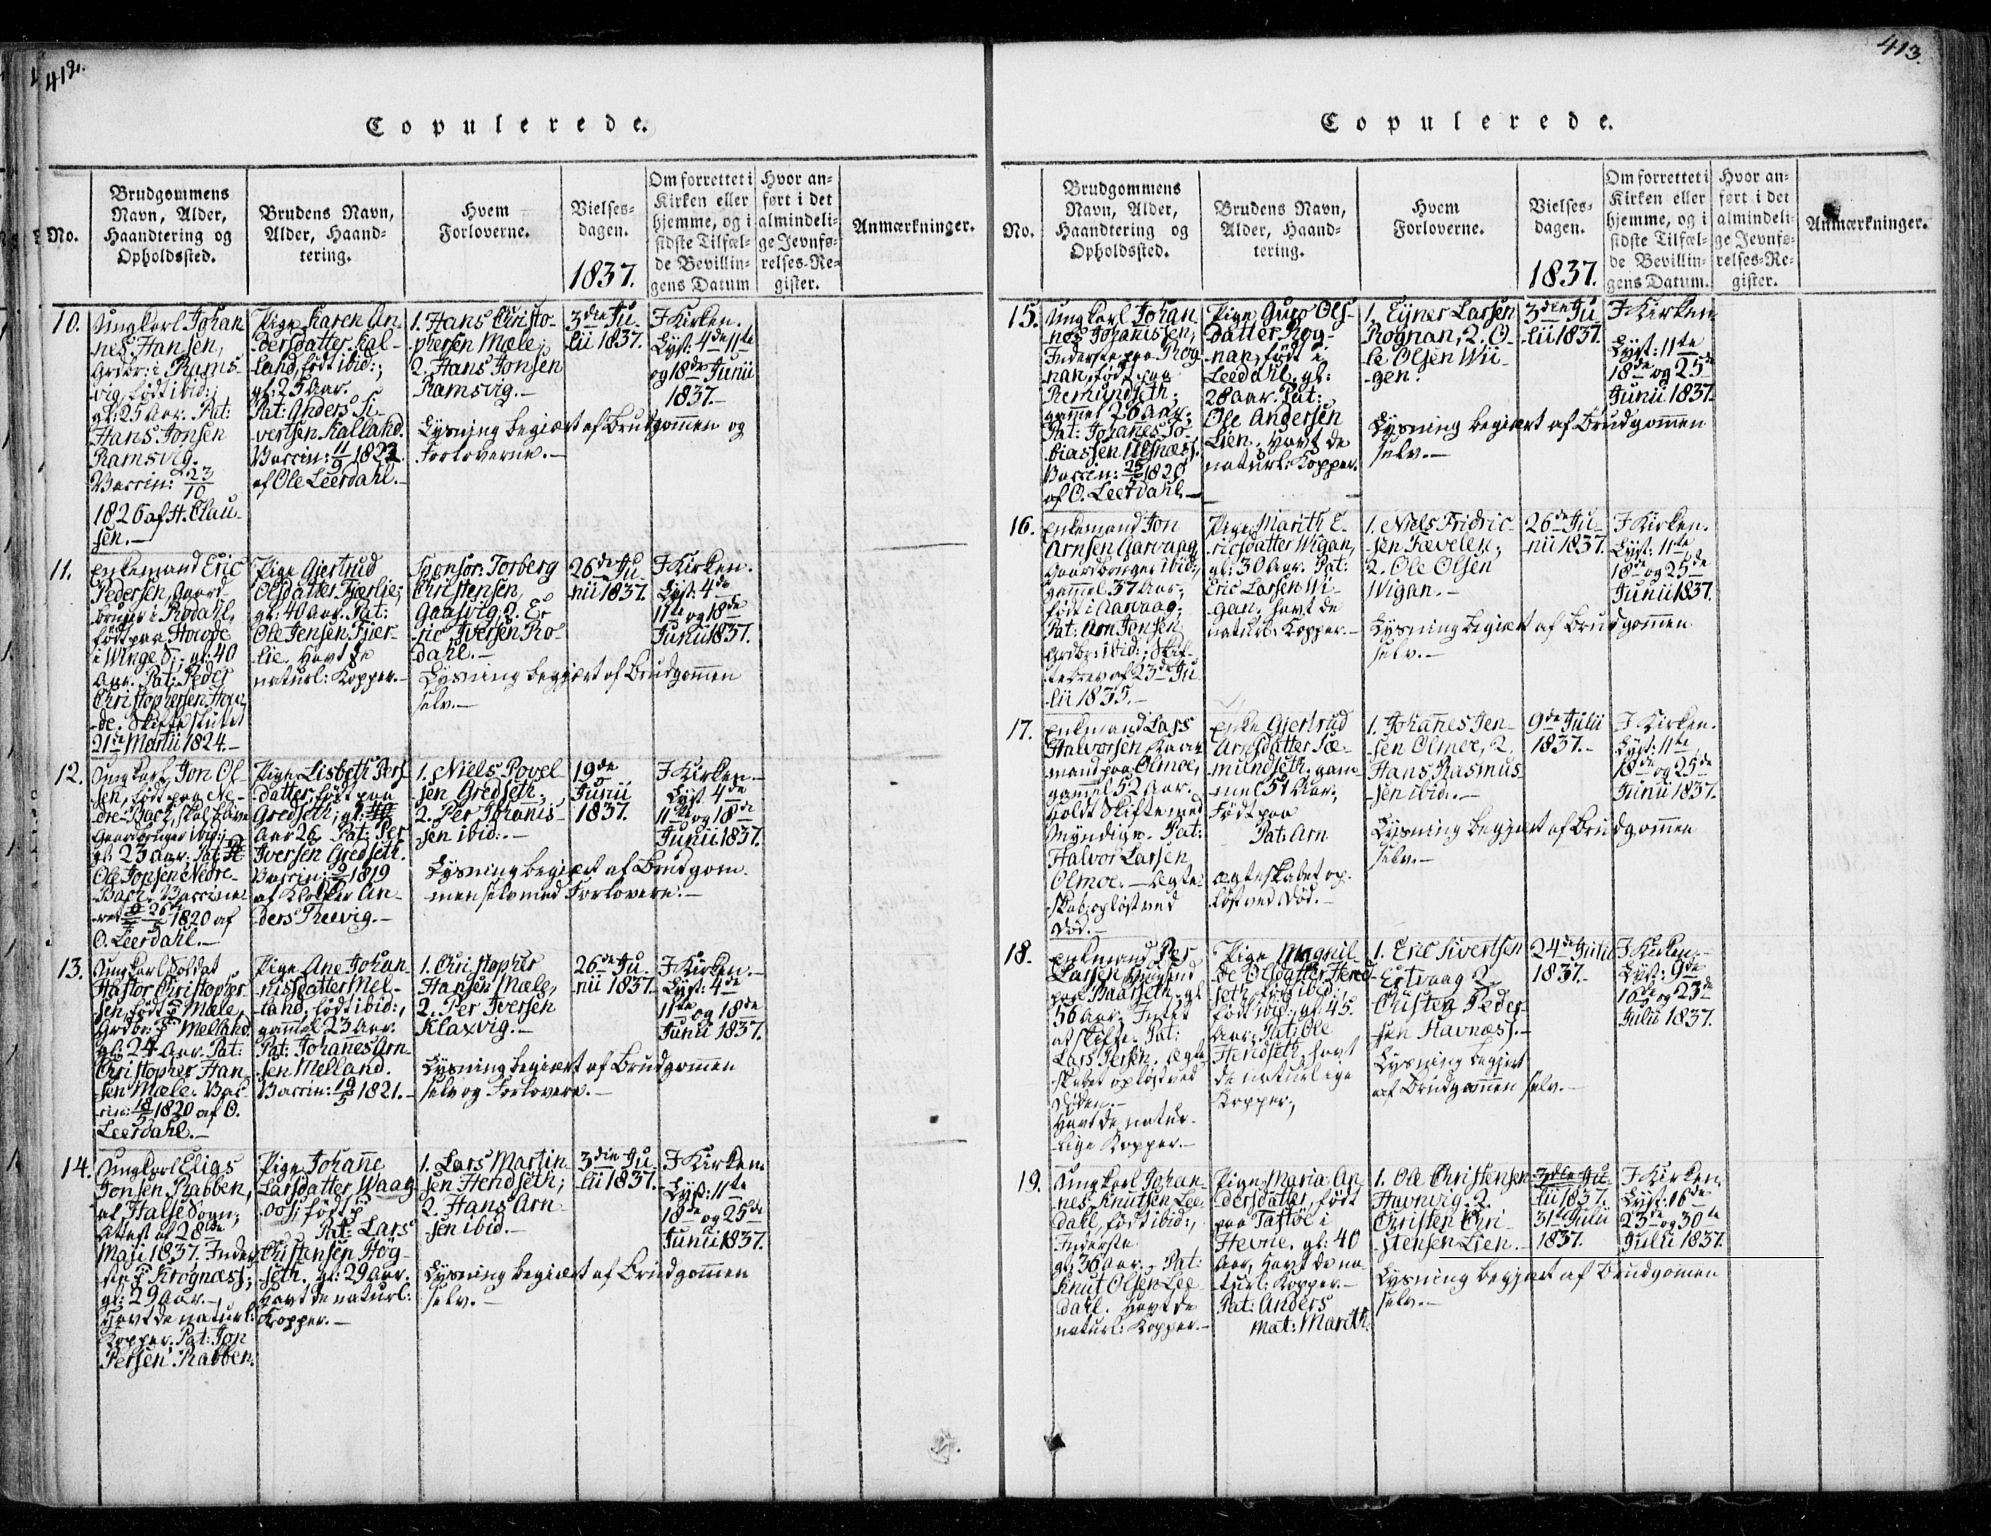 412.
Copulerede.
No.
Brudgommens
Navn, Alder,
Haandtering og
Opholdssted.
Brudens Navn,
Alder, Haand-
tering.
Hvem
Forloverne.
Vielses-
dagen.
1837.
Om forrettet i
Kirken eller
hjemme, og i
sidste Tilfæl-
de Bevillin-
gens Datum
Hvor an-
ført i det
almindeli-
ge Jevnfø-
relses-Re-
gister.
Anmærkninger.
10.
Ungkarl Johan
nes Hansen,
Grdbr: i Rams-
vig, født ibid:;
gl: 25 Aar. Pat:
Hans Jonsen
Ramsvig.
Vaccin: 23/10
1826 af H. Clau-
sen.-
Pige Karen An-
dersdatter Kal-
land, født ibid:;
gl: 25 Aar.
Pat: Anders Si-
vertsen Kalland.
Vaccin: 11/9 1822
af Ole Leerdahl.-
1. Hans Christo-
phersen Mæle;
2. Hans Jonsen
Ramsvig.-
Lysning begiært af Brudgommen og
Forloverne.-
3die Ju-
lii 1837.
I Kirken.
Lyst: 4de 11te
og 18de Junii
1837.-
11.
Enkemand Eric
Pedersen, Gaard-
bruger i Rødahl,
født paa Hovde
i Winge S; gl: 40
Aar. Pat: Peder
Christophersen Hov-
de. Skifte sluttet
21de Martii 1824.-
Pige Gjertrud
Olsdatter Fjærlie;
gl: 40 Aar. Pat:
Ole Jensen Fjer-
lie. Havt de
naturl: Kopper.-
Sponsor: Torberg
Christensen,
Gaasvig, 2. E-
ric Iversen Rø-
dahl.-
Lysning begjært af Brudgommen
selv.-
26de Ju-
nii 1837.
I Kirken.
Lyst: 4de
11te og 18de
Junii 1837.
12.
Ungkarl Jon Ol-
sen, født paa Ne-
dre-Back, skal være
Gaardbruger ibid:;
gl: 23 Aar. Pat:
Ole Jonsen Nedre-
Back. Vaccine-
ret 26/5 1820 af
O. Leerdahl.-
Pige Lisbeth Pers
datter født paa
Gredseth; gl:
Aar 26. Pat: Per
Iversen Gredseth.
Vaccin: 1819
af Klokker An-
ders Theevig.-
1. Niels Povel
sen Gredseth,
2. Per Johannis-
sen ibid:.-
Lysning begiært af Brudgom-
men selv med Forlovere.-
19de
Junii
1837.
I Kirken-
Lyst 4de
11te og 18de
Junii 1837.
13.
Ungkarl Soldat
Hastor Christopher-
sen, født p Mæle,
Grdbr: p Melland.
gl: 24 Aar. Pat:
Christopher Han-
sen Mæle. Vac-
cin: 18/5 1820 af O.
Leerdahl.-
Pige Ane Johan-
nisdatter Mel-
land, født ibid:,
gammel 23 Aar.
Pat: Johanes Arn-
sen Melland.
Vaccin: 19/5 1821.-
1. Christopher
Hansen Mæle,
2. Per Iversen
Klaxvig.-
Lysning begiært af Brudgommen
selv og Forlovere.-
26de Ju-
nii 1837.
I Kirken.-
Lyst: 4de
11te og 18de
Junii 1837.
14.
Ungkarl Elias
Jonsen Rabben,
af Halse Sogn;
Attest af 28de
Maji 1837. Inder-
ste p Krognæss,
gl: 29 Aar.-
Havt de naturl:
Kopper. Pat: Jon
Persen Rabben.
Pige Johanne
Larsdatter Waag
født p
Pat: Lars
Christensen Høg-
seth. gl: 29 Aar.
Havt de naturl:
Kopper.-
1. Lars Martin-
sen Hendseth;
2. Hans Arn
sen ibid.-
Lysning begiært af Brudgommen
selv.-
3die Ju-
lii 1837.
I Kirken
Lyst: 11te
18de og 25de
Junii 1837.
413.
Copulerede.
No.
Brudgommens
Navn, Alder,
Haandtering og
Opholdssted.
Brudens Navn,
Alder, Haand-
tering.
Hvem
Forloverne.
Vielses-
dagen.
1837.
Om forrettet i
Kirken eller
hjemme, og i
sidste Tilfæl-
de Bevillin-
gens Datum.
Hvor an-
ført i det
almindeli-
ge Jevnfø-
relses-Re-
gister.
Anmærkninger.
15.
Ungkarl Johan
nes Johanissen,
Inderste paa Rog
nan, født paa
Remundseth;
gammel 26 Aar.
Pat: Johanes To-
biassen Ulsnæss.
Vaccin: 25/5 1820
af O. Leerdahl.-
Pige Guro Ols-
datter Rog-
nan, født i
Leedahl, gl:
28 Aar. Pat:
Ole Andersen
Lien. Havt de
naturl: Kopper.
1. Ejner Larsen
Rognan, 2. O-
le Olsen Wii-
gen.
Lysning begiært af Brudgommen
selv.-
3die Ju
lii 1837.
I Kirken
Lyst: 11te
18de og 25de
Junii 1837.
16.
Enkemand Jon
Arnsen Aarvaag
Gaardbruger ibid:,
gammel 37 Aar,
født i Aarvaag;
Pat: Arn Jonsen
Grdbr: ibid:; Skif-
tebrev af 23de Ju
lii 1835.-
Pige Marith E-
ricsdatter Wigan,
gl: 30 Aar. Pat:
Eric Larsen Wi-
gan, havt de
naturl: Kopper.-
1. Niels Fridric
sen Fævelen,
2. Ole Olsen
Wigan.-
Lysning begiært af Brudgommen
selv.-
26de Ju-
nii 1837.
I Kirken.
Lyst: 11te
18de og 25de
Junii 1837.
17.
Enkemand Lars
Halvorsen Kaar-
mand paa Olmoe,
gammel 52 Aar.
holdt Skifte med
Myndige. Pat:
Halvor Larsen
Olmoe.- Ægte-
skab opløst ved
Død.-
Enke Gjertrud
Arnsdatter Sæ-
mundseth. gam
mel 51 Aar;
Født paa
Pat: Arn
Ægteskabet op-
løst ved Død.-
1. Johannes Jen-
sen Olmoe, 2.
Hans Rasmus
sen ibid:.-
Lysning begjært af Brudgommen
selv.-
9de Julii
1837.-
I Kirken.
Lyst: 11te,
18de og 25de
Junii 1837.
18.
Enkemand Per
Larsen Huusmd
paa Baarseth, gl:
56 Aar. Intet
at skifte. Pat:
Lars Persen. Ægte
skabet opløst ved
Døden.-
Havt de natur-
lige Kopper.-
Pige Magnil
de Olsdatter Hend-
seth, født ibid:
gl: 45.
Aar. Pat: Ole
Hendseth. havt
de naturlige
Kopper;
1. Eric Sivertsen
Ertvaag 2.
Christen Peder-
sen Stavnæss.-
Lysning begjert
af Brudgommen selv.-
24de Julii
1837.-
I Kirken.-
Lyst: 9de
16de og 23de
Julii 1837.
19.
Ungkarl Johan-
nes Knutsen Lee-
dahl, født ibid:,
Inderste
gl: 36 Aar.- Pat:
Knut Olsen Lee-
dahl. Havt de
naturl: Kopper.-
Pige Maria An
dersdatter, født
paa Taftøe i
Hevne. gl: 40
Aar, havt de na
turl: Kopper.-
Pat: Anders
Mat: Marith.
1. Ole Christensen
Havnvig. 2.
Christen Chri-
stensen Lien.-
Lysning begjært af Brudgommen
selv.-
3die Ju
lii 1837.
31te Julii
1837.
I Kirken,
Lyst: 16de
23de og 30te
Julii 1837.